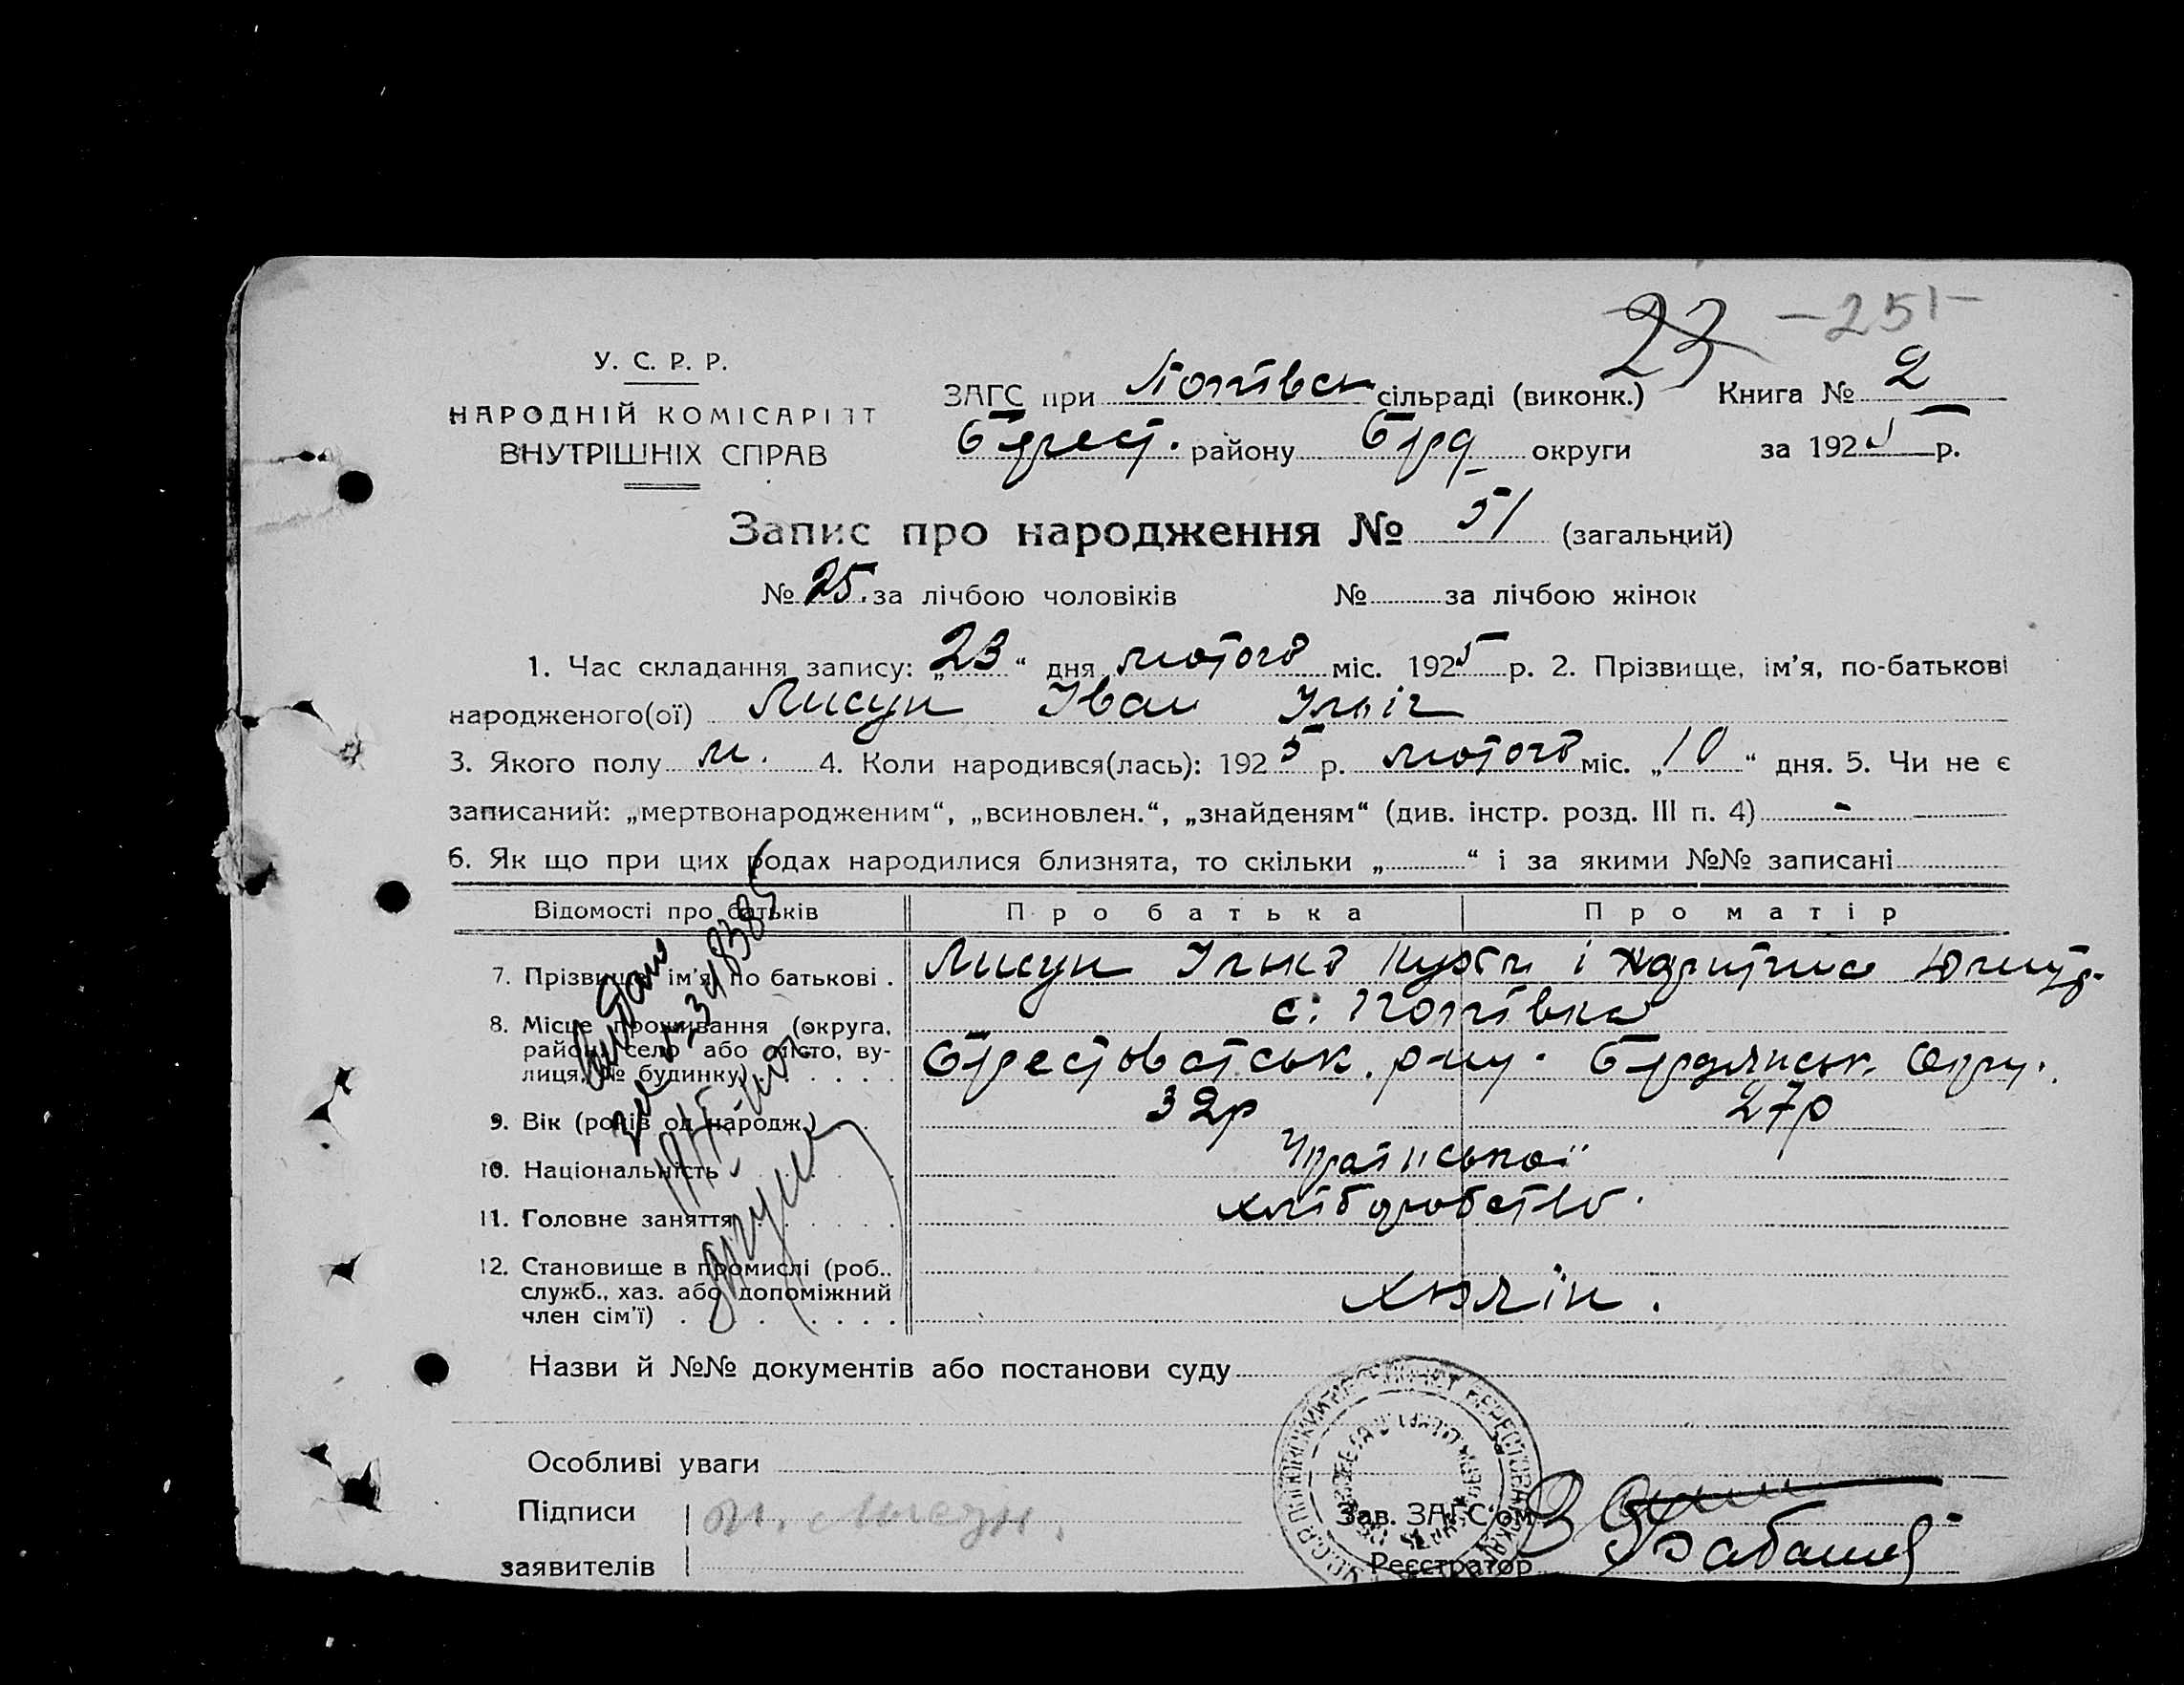 23 -251-
У. С. Р. Р.
НАРОДНІЙ КОМІСАРІЯТ
ВНУТРІШНІХ СПРАВ
ЗАГС при сільраді (виконк.) Книга № 2
Брест. району Брд округи за 1925 р.
Запис про народження № 51 (загальний)
№ 25. за лічбою чоловіків № за лічбою жінок
1. Час складання запису: „23“ дня лютого міс. 1925 р. 2. Прізвище, ім'я, по-батькові
народженого(ої) Лисун Іван Ільіч
3. Якого полу м. 4. Коли народився(лась): 1925 р. лютого міс. „10“ дня. 5. Чи не є
записаний: „мертвонародженим“, „всиновлен.“, „знайденям“ (див. інстр. розд. III п. 4) -
6. Як що при цих родах народилися близнята, то скільки „ “ і за якими №№ записані
Відомості про батьків Про батька Про матір
7. Прізвище, ім'я, по батькові . Лисун Ілько і Харитина
8. Місце проживання (округа, с.
район, село або місто, ву-
лиця, № будинку) . . . . . Берестоватськ. р-ну. Бердянськ. Окру.
9. Вік (років од народж.) . 32р 27р
10. Національність . . . . Української
11. Головне заняття . . . . . хліборобство.
12. Становище в промислі (роб.,
служб., хаз. або допоміжний
член сім'ї) . . . . . . . . хазяїн.
Назви й №№ документів або постанови суду
Особливі уваги
Підписи Лисун.
заявителів
Зав. ЗАГС'ом
Реєстратор